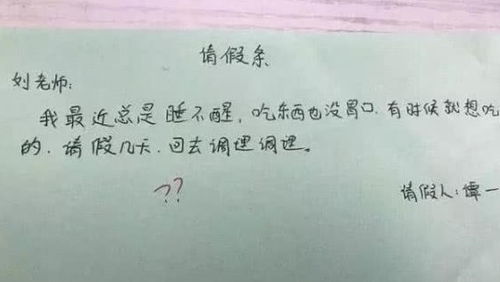 请假条
刘老师:
我最近总是睡不醒,吃东西也没胃口.有时候就想吃
的.请假几天.回去调理调理。
??
请假人:谭一